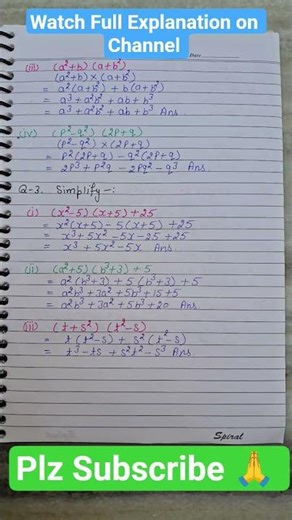 Watch Full Explanation on
Channel
Date
(iii) (a²+b) (a+b²)
(a²+b) × (a+b²)
= a²(a+b²) + b(a+b²)
= a³ + a²b² + ab + b³
= a³ + a²b² + ab + b³ Ans
(iv) (p²-q²) (2p+q)
(p²-q²) × (2p+q)
= p²(2p+q) - q²(2p+q)
= 2p³ + p²q - 2pq² - q³ Ans
Q-3. Simplify -:
(i) (x²-5) (x+5) + 25
= x²(x+5) - 5(x+5) + 25
= x³ + 5x² - 5x - 25 + 25
= x³ + 5x² - 5x Ans
(ii) (a²+5) (b³+3) + 5
= a²(b³+3) + 5(b³+3) + 5
= a²b³ + 3a² + 5b³ + 15 + 5
= a²b³ + 3a² + 5b³ + 20 Ans
(iii) (t+s²) (t²-s)
= t(t²-s) + s²(t²-s)
= t³ - ts + s²t² - s³ Ans
Spiral
Plz Subscribe 🙏